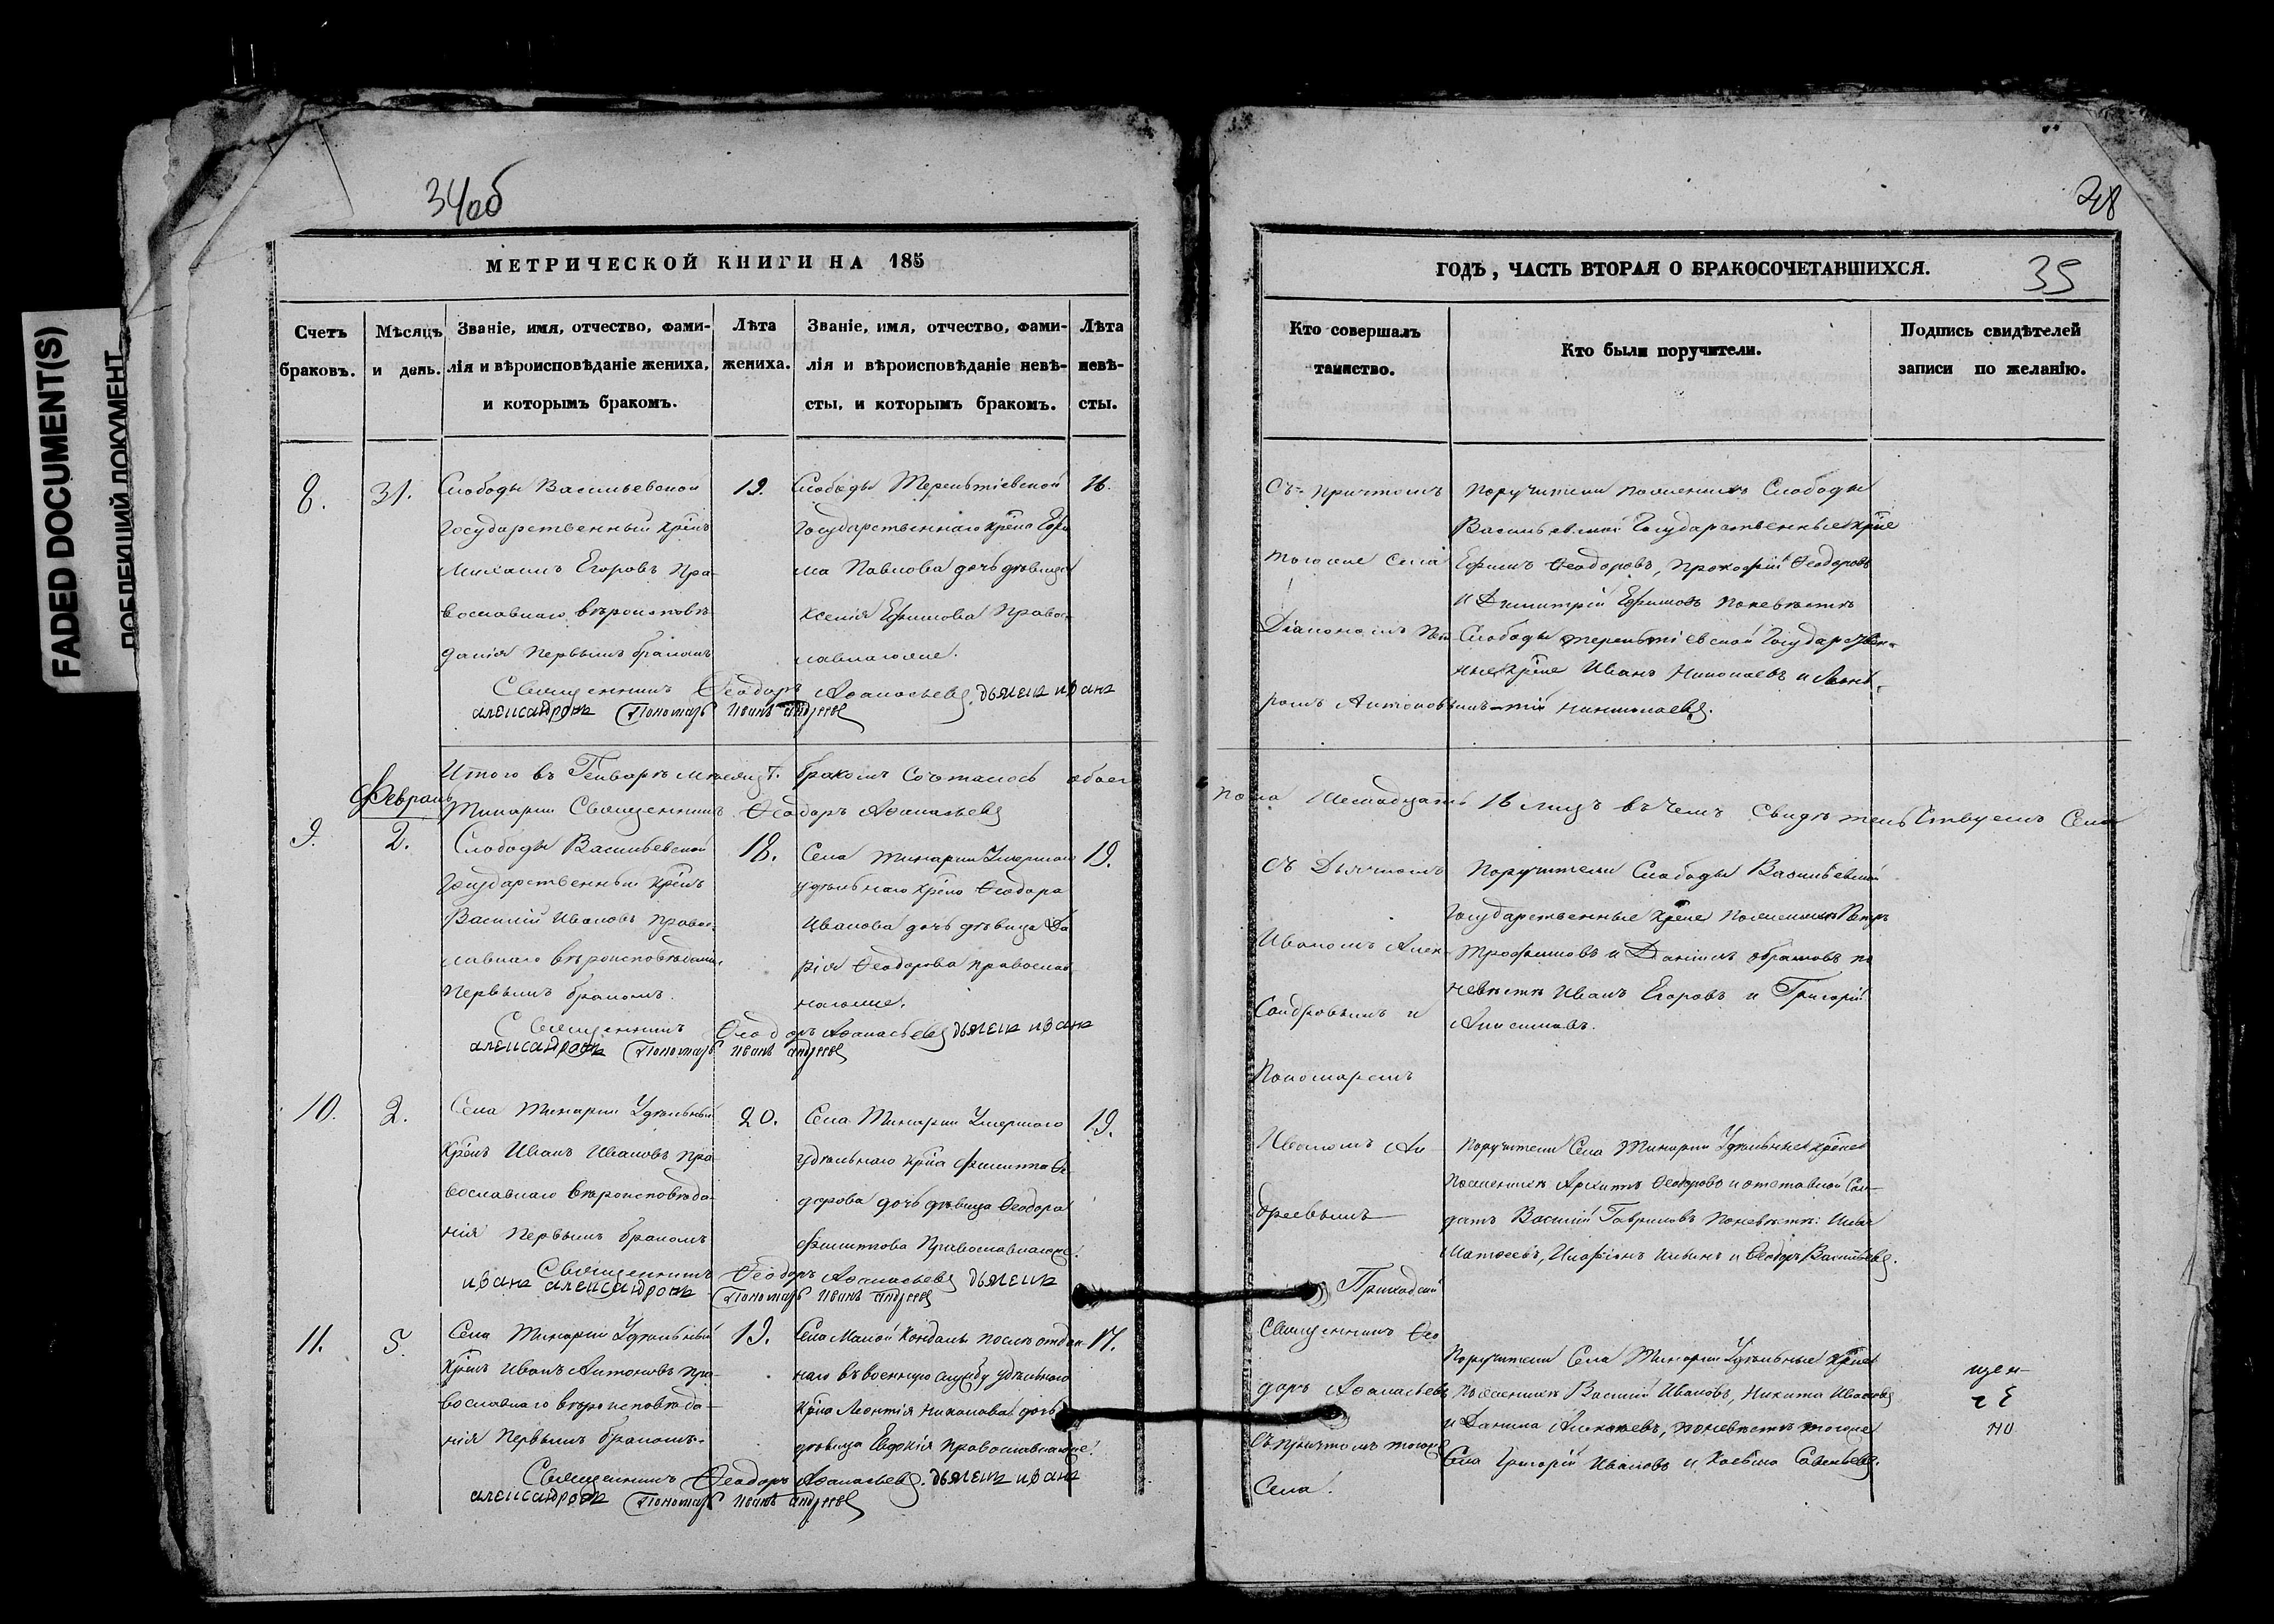 FADED DOCUMENT(S)
ПОБЛЕКШИЙ ДОКУМЕНТ
34об
МЕТРИЧЕСКОЙ КНИГИ НА 185
Счетъ браковъ.
Мѣсяцъ и день.
Званіе, имя, отчество, фами-
лія и вѣроисповѣданіе жениха,
и которымъ бракомъ.
Лѣта жениха.
Званіе, имя, отчество, фами-
лія и вѣроисповѣданіе невѣ-
сты, и которымъ бракомъ.
Лѣта невѣ-
сты.
8.
31.
Слободы Васильевской
Государственный крѣнъ
Михаилъ Егоровъ Пра-
вославнаго вѣроисповѣ-
данія первымъ бракомъ
19.
Слободы Терентіевской
Государственнаго крѣна Ефи
ма Павлова дочь дѣвица
Ксенія Ефимова Правос-
лавнагоже.
16.
Священникъ Ѳеодоръ Аѳанасьевъ. дьячекъ иванъ
александровъ Пономарь Иванъ Андреевъ
Итого въ Генварѣ мѣсяцѣ браковъ Состалось обоего
Священникъ Ѳеодоръ Аѳанасьевъ
Февраль
9.
2.
Слободы Васильевской
Государственный крѣнъ
Василій Ивановъ Правос-
лавнаго вѣроисповѣданія
Первымъ бракомъ.
18.
Села Тинарки Умершаго
удѣльнаго крѣна Ѳеодора
Иванова дочь дѣвица Да
рія Ѳеодорова православ
нагоже.
19.
Священникъ Ѳеодоръ Аѳанасьевъ дьячекъ иванъ
александровъ Пономарь Иванъ Андреевъ
10.
2.
Села Тинарки Удѣльный
Крѣнъ Иванъ Ивановъ Пра
вославнаго вѣроисповѣда-
нія Первымъ бракомъ
20.
Села Тинарки Умершаго
удѣльнаго крѣна Филиппа Ѳе
дорова дочь дѣвица Ѳеодора
Филиппова Православнагоже.
19.
Священникъ Ѳеодоръ Аѳанасьевъ дьячекъ
иванъ александровъ Пономарь Иванъ Андреевъ
11.
5.
Села Тинарки Удѣльный
Крѣнъ Иванъ Антоновъ Пра-
вославнаго вѣроисповѣда-
нія Первымъ бракомъ.
19.
Села Малой Кандалы после отдан-
наго въ военную службу удѣльнаго
Крѣна Леонтія Николаева дочь
дѣвица Евфкія Православнагоже.
17.
Священникъ Ѳеодоръ Аѳанасьевъ. дьячекъ иванъ
александровъ Пономарь Иванъ Андреевъ
ГОДЪ, ЧАСТЬ ВТОРАЯ О БРАКОСОЧЕТАВШИХСЯ.
35
Кто совершалъ
таинство.
Кто были поручители.
Подпись свидѣтелей
записи по желанію.
Съ причтомъ
тогоже Села
Діакономъ Пет
ромъ Антоновымъ
Поручители по женихѣ Слободы
Васильевской Государственные крѣне
Ефимъ Ѳеодоровъ, Прокофій Ѳеодоровъ
и Димитрій Ефимовъ По невѣстѣ
Слободы Терентіевской Государствен-
ные крѣне Иванъ Николаевъ и Леон-
тій Николаевъ.
пола Шестнадцать 16 лицъ въ Чемъ Свидѣтельствуемъ Села
Съ Дьячкомъ
Иваномъ Алек-
Сандровымъ и
Пономаремъ
Иваномъ Ан-
дреевымъ
Поручители Слободы Васильевской
Государственные крѣне По женихѣ Петръ
Трофимовъ и Данилъ Абрамовъ по
невѣстѣ Иванъ Егоровъ и Григорій
Анисимовъ.
Поручители Села Тинарки Удѣльные крѣне
По женихѣ Архипъ Ѳеодоровъ и отставной Сол-
датъ Василій Гавриловъ По невѣстѣ: Илья
Матѳеевъ, Иларіонъ Ильинъ и Ѳеодоръ Васильевъ.
Приходскій
Священникъ Ѳео
доръ Аѳанасьевъ
Съ причтомъ тогоже
Села.
Поручители Села Тинарки Удѣльные крѣне
По женихѣ Василій Ивановъ, Никита Ивановъ
и Данила Алексѣевъ, по невѣстѣ тогоже
Села Григорій Ивановъ и Козьма Савельевъ.